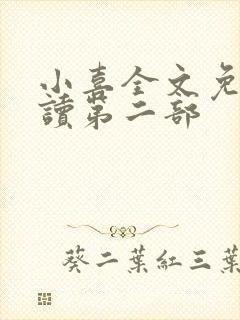 小喜全文免
讀第二部
葵二葉紅三葉